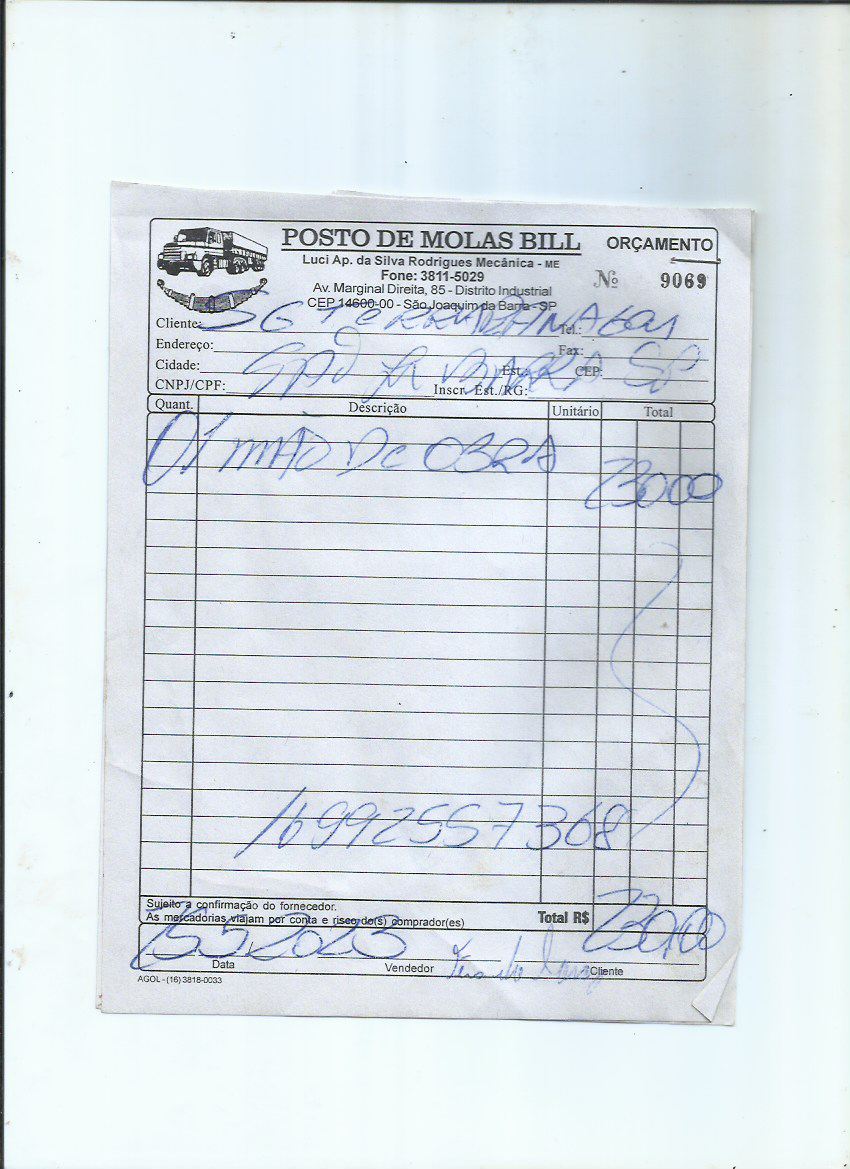 POSTO DE MOLAS BILL ORÇAMENTO
Luci Ap. da Silva Rodrigues Mecânica - ME
Fone: 3811-5029
Nº 9069
Av. Marginal Direita, 85 - Distrito Industrial
CEP 14600-00 - São Joaquim da Barra - SP
Cliente: SG Tel.:
Endereço: Fax:
Cidade: BARRA Est. CEP: SP
CNPJ/CPF: Inscr. Est./RG:
Quant. Descrição Unitário Total
01 MÃO De OBRA 23000
16992557368
Sujeito a confirmação do fornecedor.
As mercadorias viajam por conta e risco do(s) comprador(es)
Total R$ 230,00
15.5.2023
Data Vendedor Cliente
AGOL - (16) 3818-0033